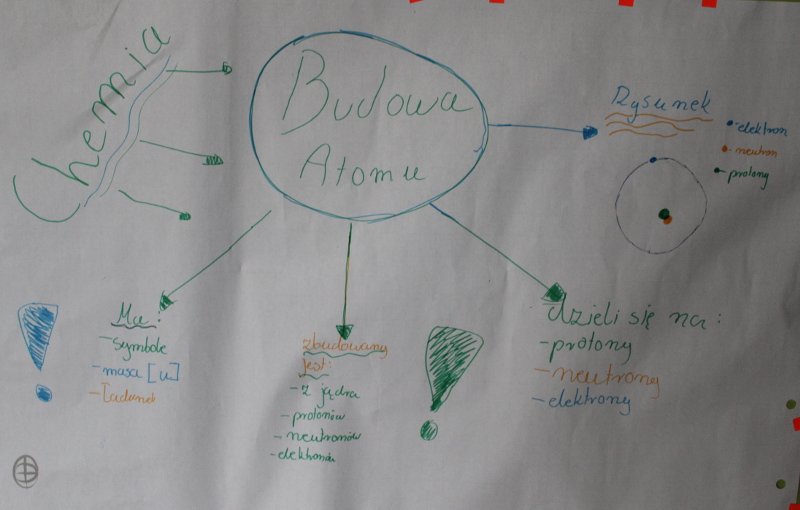 Chemia
Budowa
Atomu
Rysunek
- elektron
- neutron
- protony
Ma:
- symbole
- masa [u]
- Ładunek
zbudowany
jest:
- z jądra
- protonów
- neutronów
- elektronów
dzieli się na:
- protony
- neutrony
- elektrony